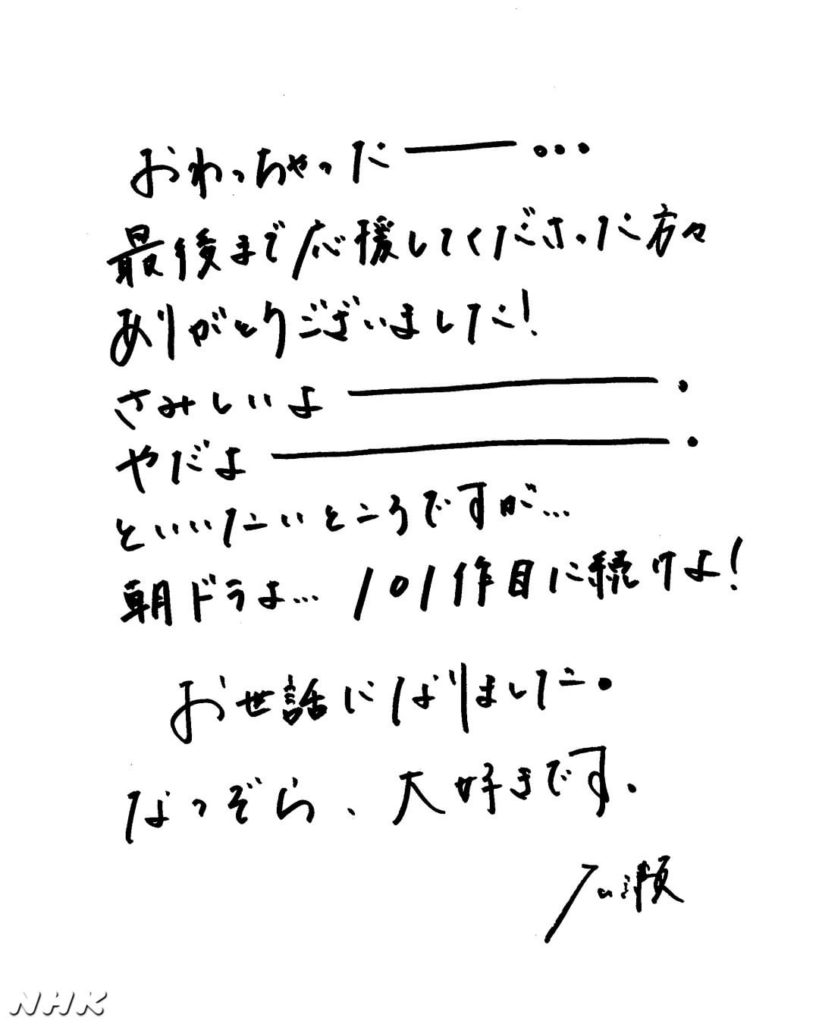 おわっちゃったーー...
最後まで応援してくださった方々
ありがとうございました!
さみしいよーーーーーー.
やだよーーーーーーーー.
といいたいところですが...
朝ドラよ... 101作目に続けよ!
お世話になりました。
なつぞら、大好きです。
広瀬
NHK